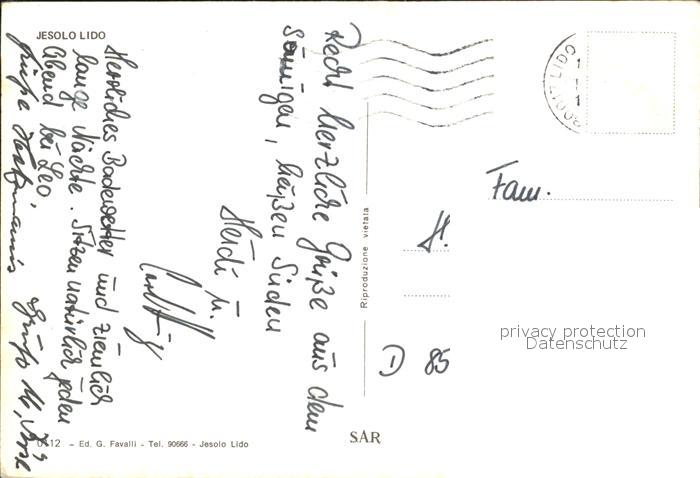 JESOLO LIDO
Recht herzliche Grüße aus dem
sonnigen, heißen Süden
Heidi u.
Herrliches Badewetter und ziemlich
lange Nächte. Sitzen natürlich jeden
Abend bei Leo
Grüße
Grüße
LIDO
Fam.
H.
D 85
Riproduzione vietata
privacy protection
Datenschutz
SAR
12 - Ed. G. Favalli - Tel. 90666 - Jesolo Lido